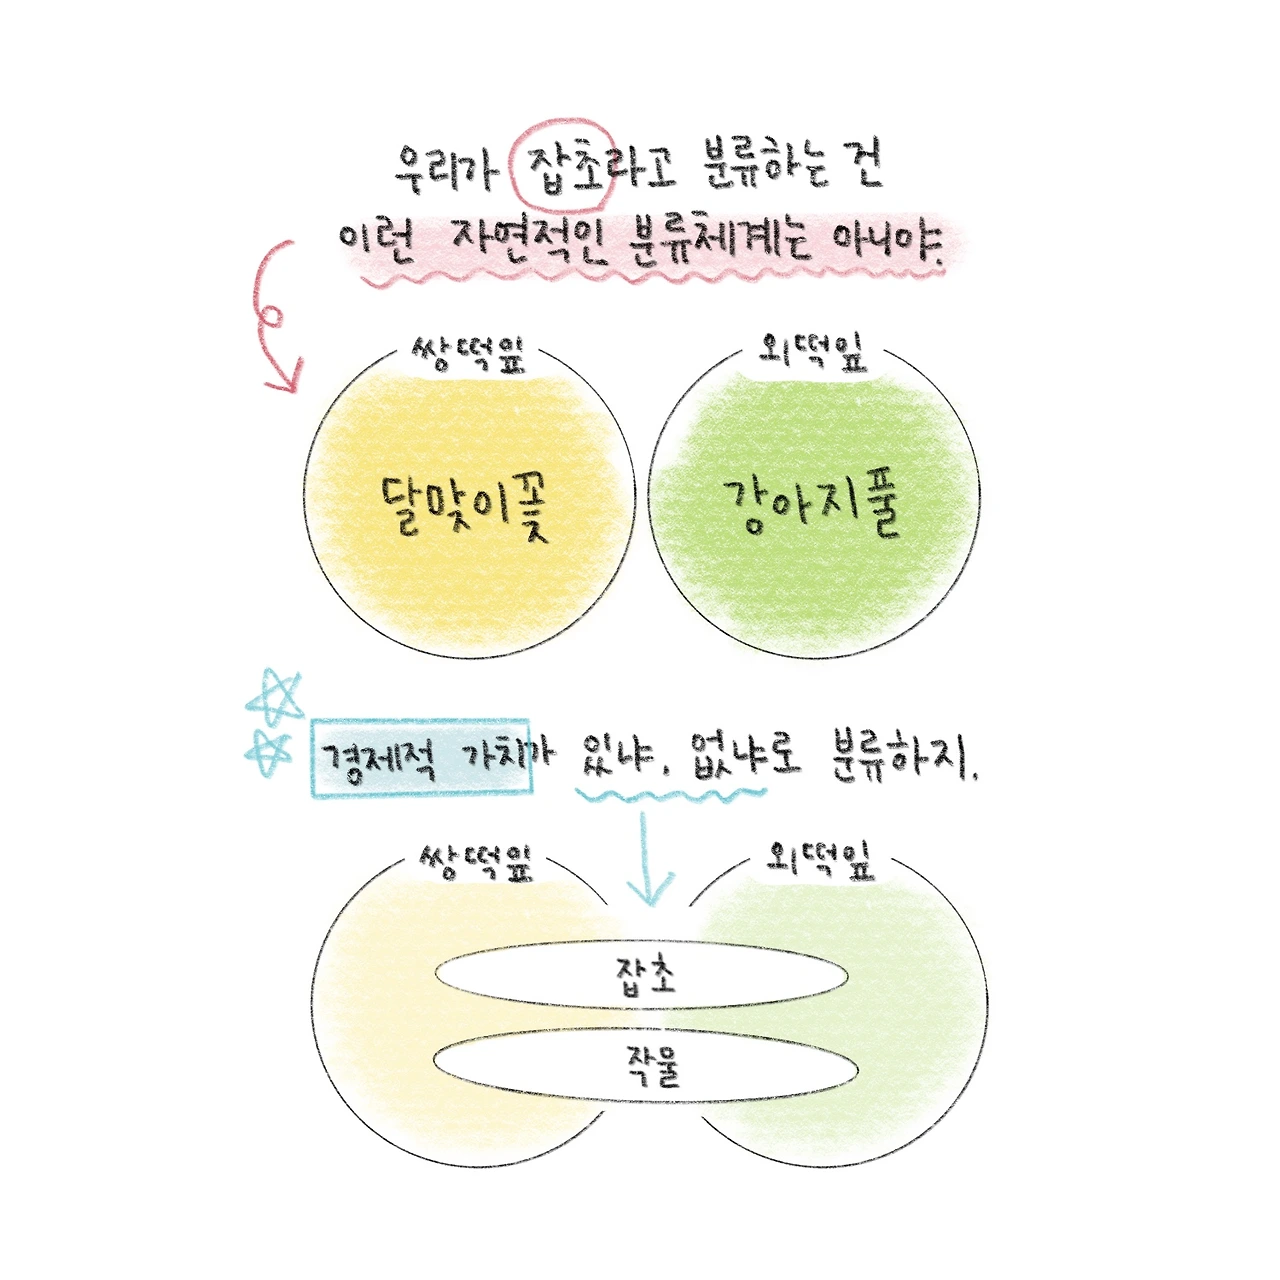 우리가 잡초라고 분류하는 건
이런 자연적인 분류체계는 아니야.
쌍떡잎
외떡잎
달맞이꽃
강아지풀
경제적 가치가 있냐, 없냐로 분류하지.
쌍떡잎
외떡잎
잡초
작물